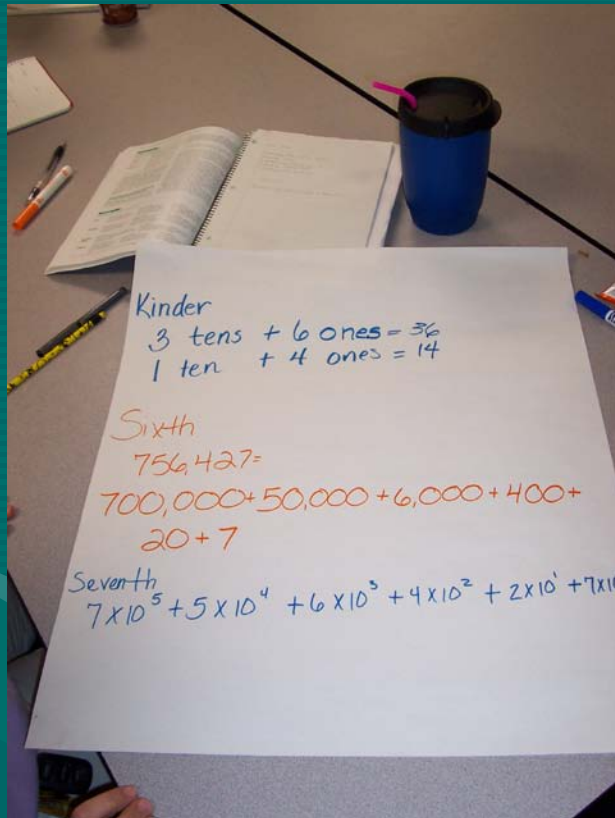 Kinder
3 tens + 6 ones = 36
1 ten + 4 ones = 14
Sixth
756,427=
700,000+50,000+6,000+400+
20+7
Seventh
7x10⁵+5x10⁴+6x10³+4x10²+2x10¹+7x10